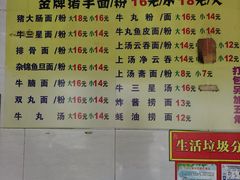 金牌猪手面/粉 16元小18元/大
猪大肠面/粉 大18元 小16元
牛三星面/粉 大16元 小14元
排骨面/粉 大16元 小14元
杂锦鱼旦面/粉 大16元 小14元
牛腩面/粉 大16元 小14元
双丸面/粉 大16元 小14元
牛丸汤 大16元 小14元
牛丸粉/面 大16元 小14元
牛丸鱼皮面/粉 大16元 小14元
上汤云吞面/粉 大14元
上汤净云吞 大14元
上汤斋面/粉 大8元 小7元
牛三星汤 大16元 小14元
炸酱捞面 13元
蚝油捞面 12元
打包另加五角
生活垃圾分